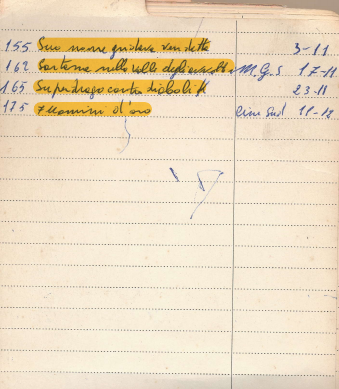 155 Suo nome gridava vendetta 3-11
162 Sartana nella valle degli avvoltoi M.G.S 17-11
165 Superdrago contro diabolik 23-11
175 7 uomini d'oro Cine Sud 11-12